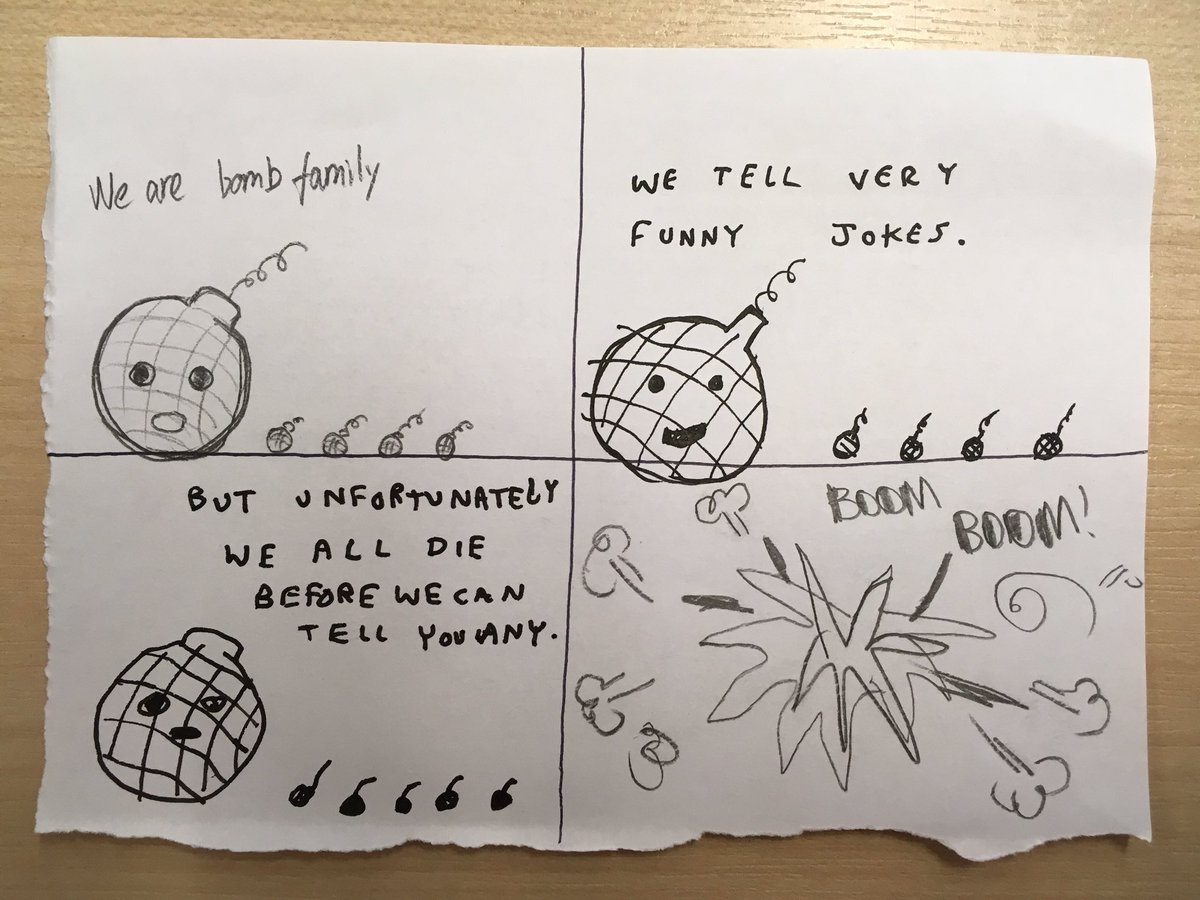 We are bomb family
WE TELL VERY
FUNNY JOKES.
BUT UNFORTUNATELY
WE ALL DIE
BEFORE WE CAN
TELL YOU ANY.
BOOM
BOOM!